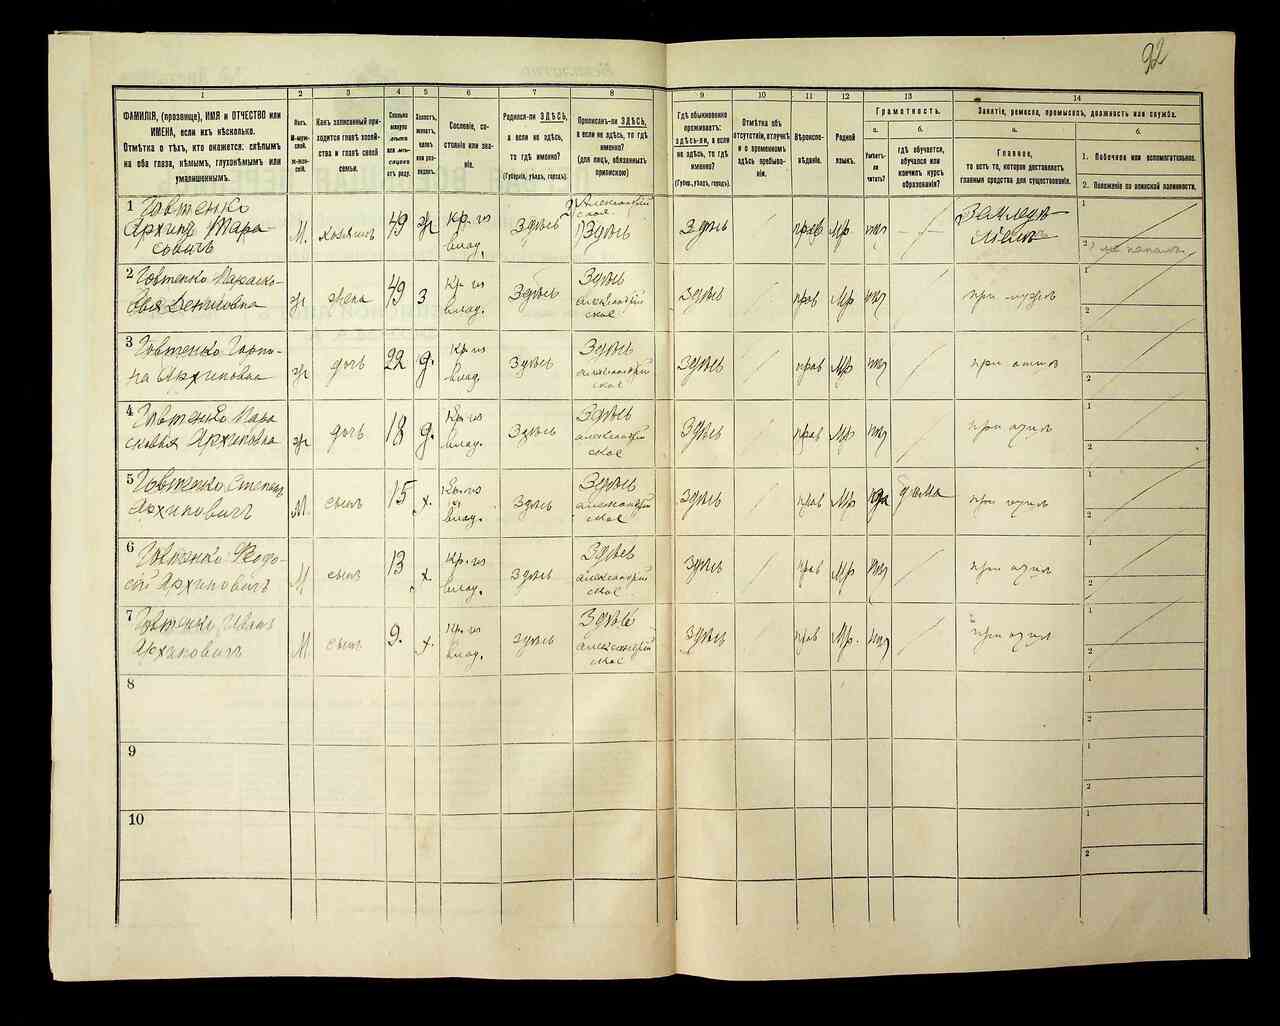 92
1
2
3
4
5
6
7
8
9
10
11
12
13
14
ФАМИЛІЯ, (прозвище), ИМЯ и ОТЧЕСТВО или
ИМЕНА, если ихъ нѣсколько.
Отмѣтка о тѣхъ, кто окажется: слѣпымъ
на оба глаза, нѣмымъ, глухонѣмымъ или
умалишеннымъ.
Полъ.
М-муж-
ской.
Ж-жен-
скій.
Какъ записанный при-
ходится главѣ хозяй-
ства и главѣ своей
семьи.
Сколько
минуло
лѣтъ
или мѣ-
сяцевъ
отъ роду.
Холостъ,
женатъ,
вдовъ
или раз-
веденъ.
Сословіе, со-
стояніе или зва-
ніе.
Родился-ли ЗДѢСЬ,
а если не здѣсь,
то гдѣ именно?
(Губернія, уѣздъ, городъ).
Приписанъ-ли ЗДѢСЬ,
а если не здѣсь, то гдѣ
именно?
(для лицъ, обязанныхъ
припискою)
Гдѣ обыкновенно
проживаетъ:
здѣсь-ли, а если
не здѣсь, то гдѣ
именно?
(Губер., уѣздъ, городъ).
Отмѣтка объ
отсутствіи, отлучкѣ
и о временномъ
здѣсь пребыва-
ніи.
Вѣроиспо-
вѣданіе.
Родной
языкъ.
Грамотность.
а.
Умѣетъ-
ли
читать?
б.
гдѣ обучается,
обучался или
кончилъ курсъ
образованія?
Занятіе, ремесло, промыселъ, должность или служба.
а.
Главное,
то есть то, которое доставляетъ
главныя средства для существованія.
б.
1. Побочное или вспомогательное.
2. Положеніе по воинской повинности.
1 Говтенко
Архипъ Тара-
совичъ
М. хозяинъ 49 ж Кр. из
влад.
Здѣсь
Александрій
ское
Здѣсь
Здѣсь прав Мр нѣт
Земледѣ-
1
2
2 Говтенко Параско-
вья Денисовна
ж жена 49 з Кр. из
влад.
Здѣсь Здѣсь
александрій
ское
Здѣсь прав Мр нѣт при мужѣ
1
2
3 Говтенко Горпи-
на Архиповна
ж дочь 22 д. Кр из
влад.
Здѣсь Здѣсь
александрій
ское
Здѣсь прав Мр нѣт при отцѣ
1
2
4 Говтенко Пара
сковья Архиповна
ж дочь 18 д. Кр. из
влад.
Здѣсь Здѣсь
александрій
ское
Здѣсь прав Мр нѣт при отцѣ
1
2
5 Говтенко Степанъ
Архиповичъ
М. сынъ 15 х. Кр. из
влад.
Здѣсь Здѣсь
александрій
ское
Здѣсь прав Мр да дома при отцѣ
1
2
6 Говтенко Ѳеодо-
сій Архиповичъ
М. сынъ 13 х Кр. из
влад.
Здѣсь Здѣсь
александрій
ское
Здѣсь прав Мр нѣт при отцѣ
1
2
7 Говтенко Иванъ
Архиповичъ
М. сынъ 9. х. Кр. из
влад.
Здѣсь Здѣсь
александрій
ское
Здѣсь прав Мр. нѣт при отцѣ
1
2
8
1
2
9
1
2
10
1
2